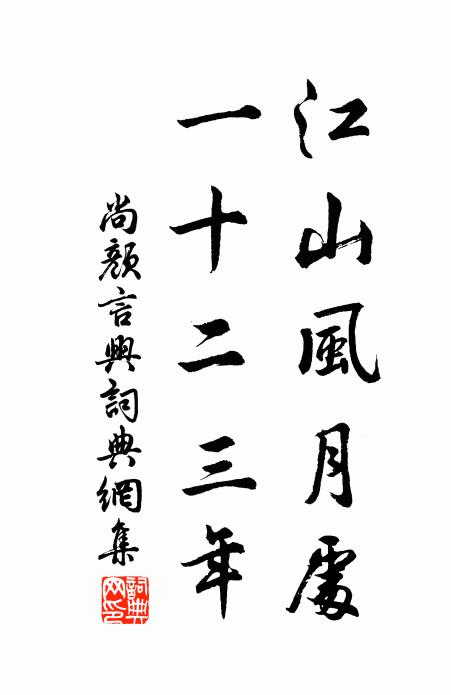 江山風月處
一十二三年
尚顏言興詞典網集
詞典
网印